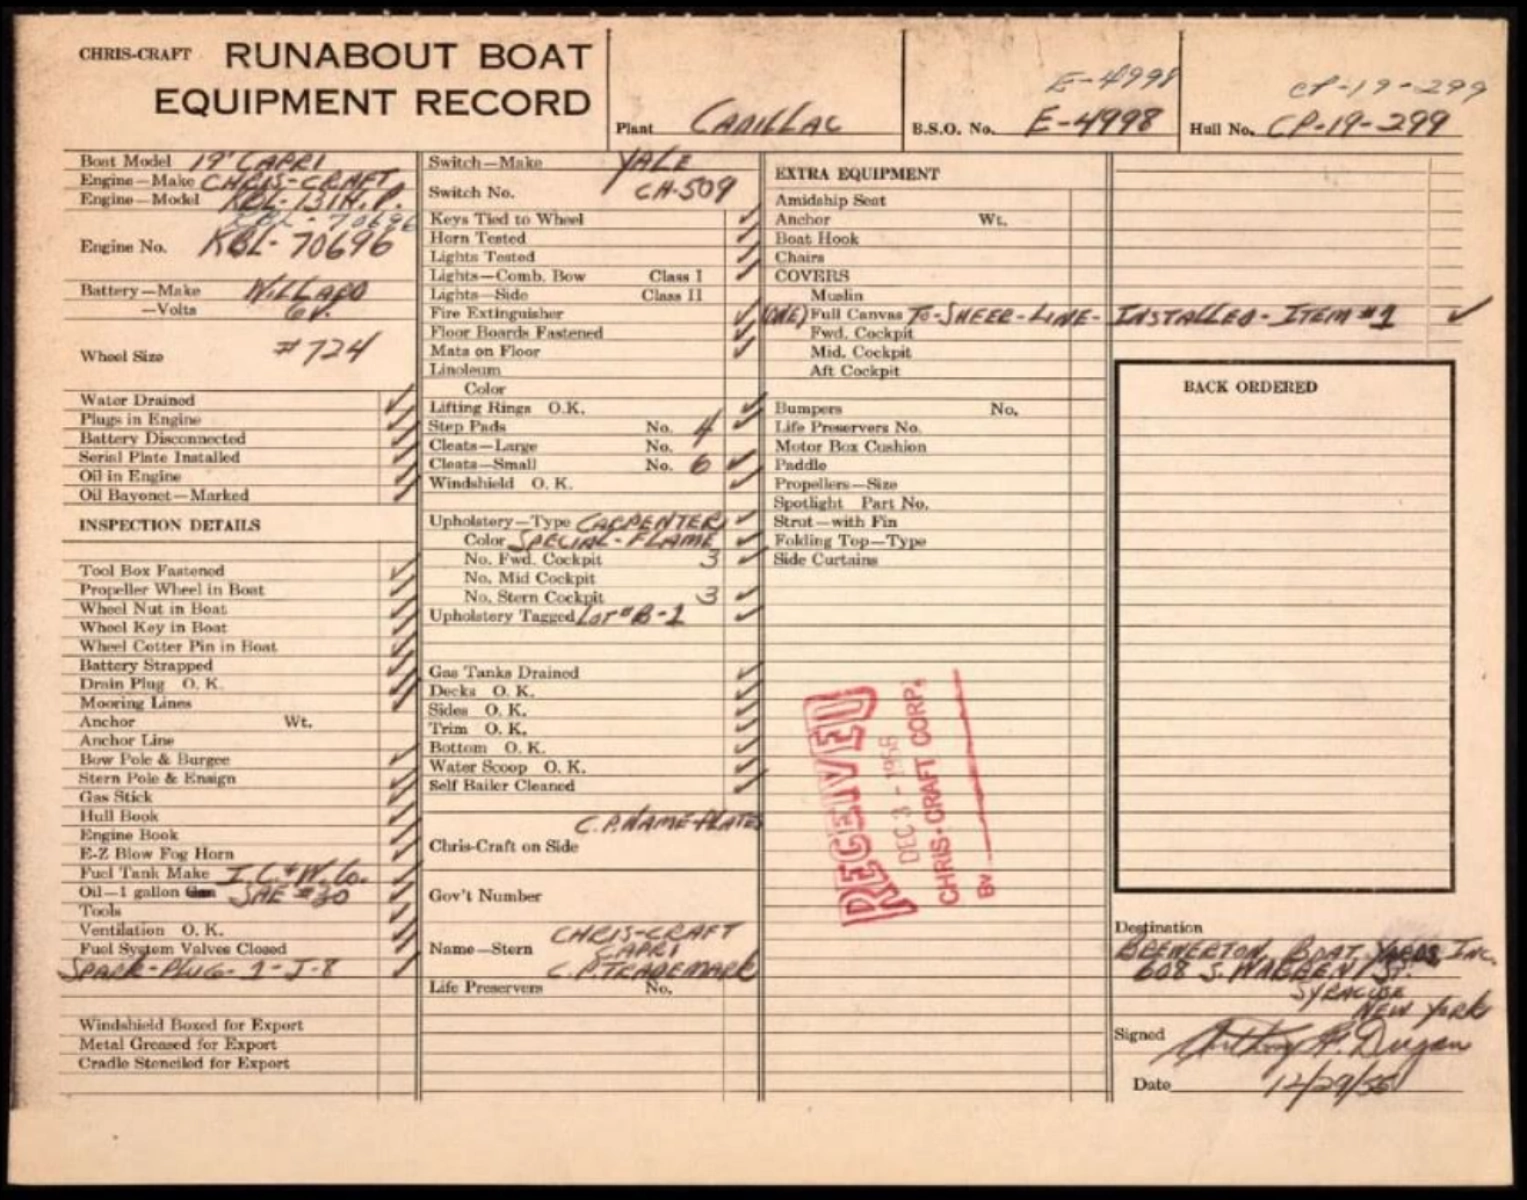 CHRIS-CRAFT RUNABOUT BOAT
EQUIPMENT RECORD
Plant CADILLAC
E-4998
B.S.O. No. E-4998
CP-19-299
Hull No. CP-19-299
Boat Model 19' CAPRI
Engine—Make CHRIS-CRAFT
Engine—Model KBL-131H.P.
KBL-70696
Engine No. KBL-70696
Battery—Make WILLARD
—Volts 6V.
Wheel Size #724
Water Drained ✓
Plugs in Engine ✓
Battery Disconnected ✓
Serial Plate Installed ✓
Oil in Engine ✓
Oil Bayonet—Marked ✓
INSPECTION DETAILS
Tool Box Fastened ✓
Propeller Wheel in Boat ✓
Wheel Nut in Boat ✓
Wheel Key in Boat ✓
Wheel Cotter Pin in Boat ✓
Battery Strapped ✓
Drain Plug O. K. ✓
Mooring Lines ✓
Anchor Wt.
Anchor Line
Bow Pole & Burgee ✓
Stern Pole & Ensign ✓
Gas Stick ✓
Hull Book ✓
Engine Book ✓
E-Z Blow Fog Horn ✓
Fuel Tank Make I.C.+W.Co. ✓
Oil—1 gallon SAE #30 ✓
Tools ✓
Ventilation O. K. ✓
Fuel System Valves Closed ✓
SPARK-PLUG-1-J-8 ✓
Windshield Boxed for Export
Metal Greased for Export
Cradle Stenciled for Export
Switch—Make YALE
Switch No. CH-509
Keys Tied to Wheel ✓
Horn Tested ✓
Lights Tested ✓
Lights—Comb. Bow Class I ✓
Lights—Side Class II
Fire Extinguisher ✓
Floor Boards Fastened ✓
Mats on Floor ✓
Linoleum
Color
Lifting Rings O.K. ✓
Step Pads No. 4 ✓
Cleats—Large No.
Cleats—Small No. 6 ✓
Windshield O. K. ✓
Upholstery—Type CARPENTER ✓
Color SPECIAL-FLAME ✓
No. Fwd. Cockpit 3 ✓
No. Mid Cockpit
No. Stern Cockpit 3 ✓
Upholstery Tagged LOT #B-1 ✓
Gas Tanks Drained ✓
Decks O. K. ✓
Sides O. K. ✓
Trim O. K. ✓
Bottom O. K. ✓
Water Scoop O. K. ✓
Self Bailer Cleaned ✓
C.P. NAME-PLATES
Chris-Craft on Side
Gov't Number
CHRIS-CRAFT
Name—Stern CAPRI
C.P. TRADEMARK
Life Preservers No.
EXTRA EQUIPMENT
Amidship Seat
Anchor Wt.
Boat Hook
Chairs
COVERS
Muslin
(ONE) Full Canvas TO-SHEER-LINE-INSTALLED-ITEM #1 ✓
Fwd. Cockpit
Mid. Cockpit
Aft Cockpit
Bumpers No.
Life Preservers No.
Motor Box Cushion
Paddle
Propellers—Size
Spotlight Part No.
Strut—with Fin
Folding Top—Type
Side Curtains
RECEIVED
DEC 3 - 1956
CHRIS-CRAFT CORP.
BY
BACK ORDERED
Destination
BREWERTON BOAT YARDS INC.
608 S. WARREN ST.
SYRACUSE
NEW YORK
Signed Anthony F. Dugan
Date